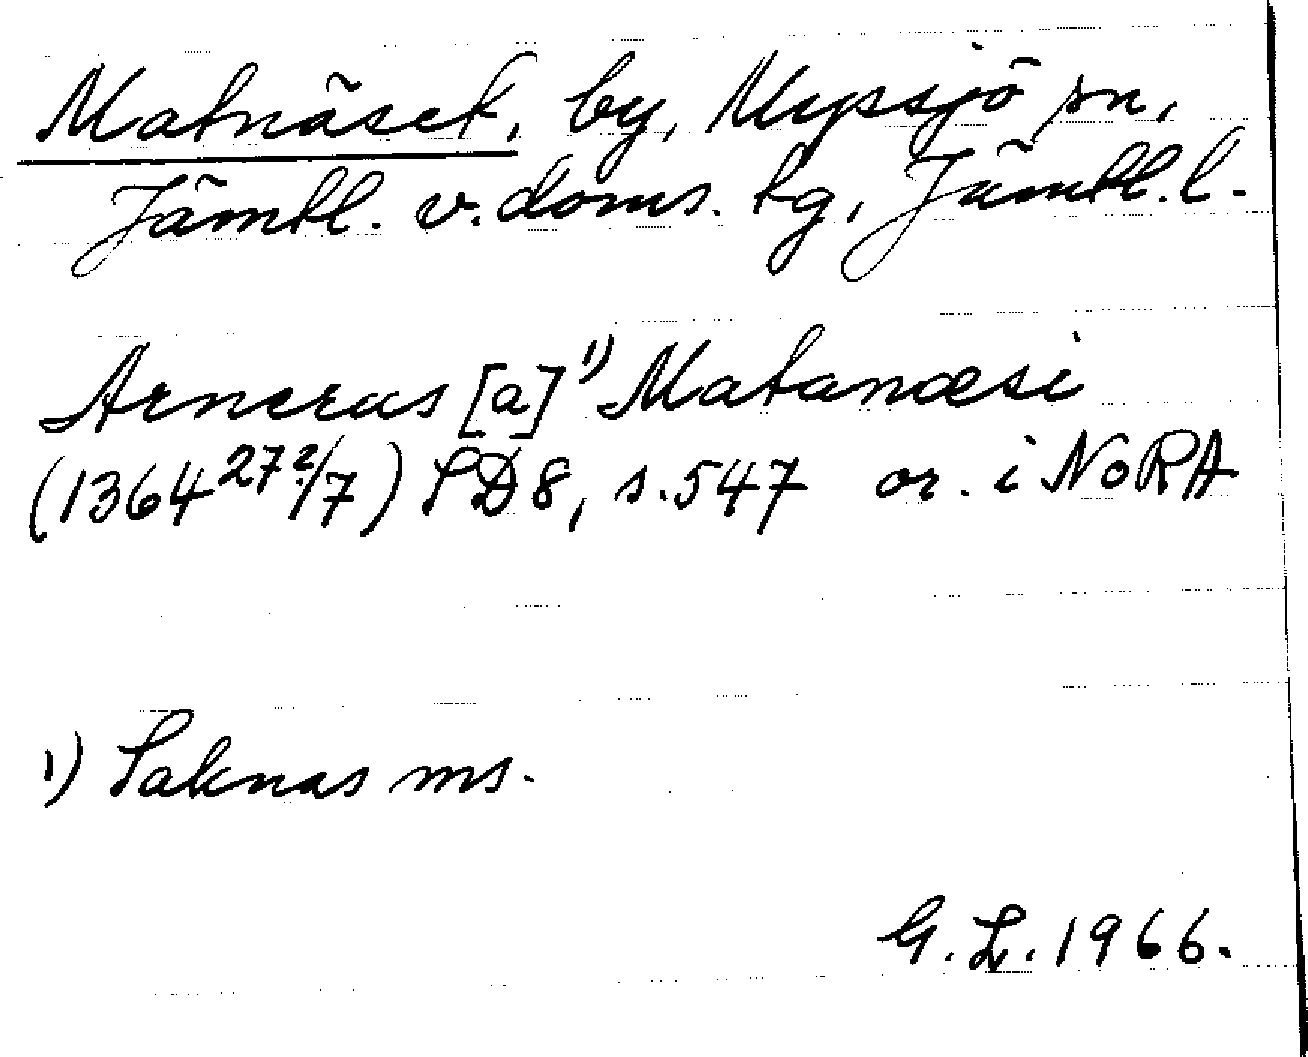 Matnäset, by, Myssjö sn,
Jämtl. v. doms. tg, Jämtl. l.
Arnerus [a] 1) Matanæsi
(1364 27 2/7) SD 8, s. 547 or. i NoRA
1) Saknas ms.
G. L. 1966.